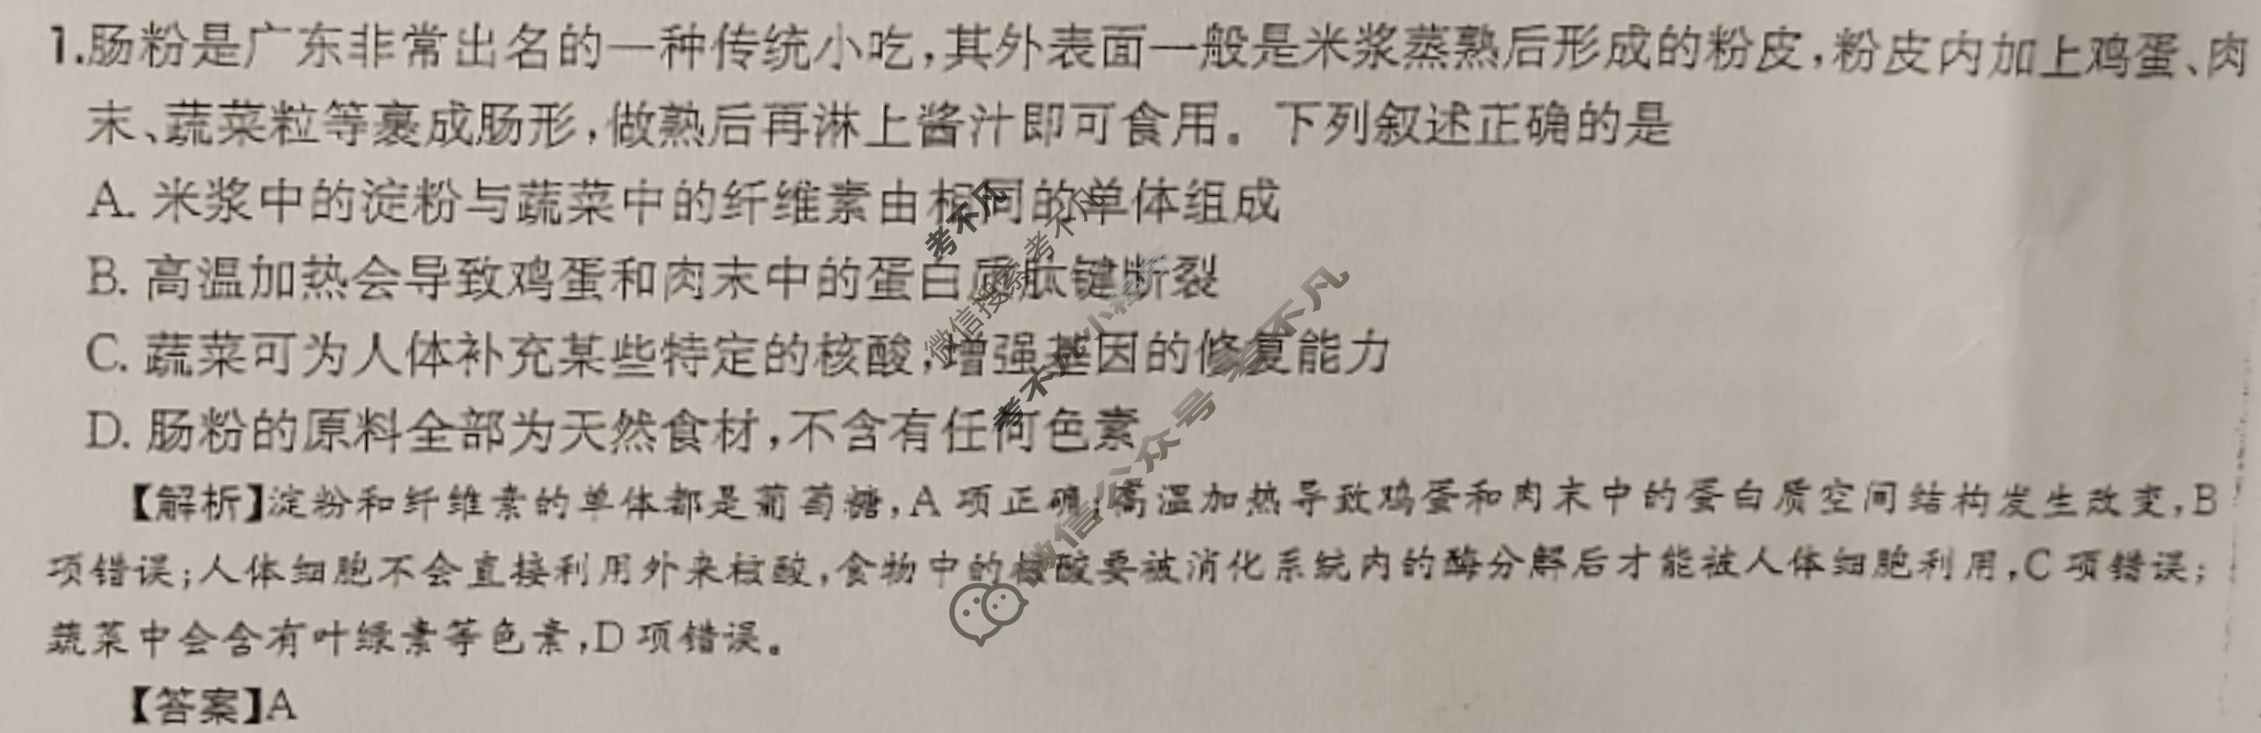 1.肠粉是广东非常出名的一种传统小吃,其外表面一般是米浆蒸熟后形成的粉皮,粉皮内加上鸡蛋、肉
末、蔬菜粒等裹成肠形,做熟后再淋上酱汁即可食用。下列叙述正确的是
A. 米浆中的淀粉与蔬菜中的纤维素由相同的单体组成
B. 高温加热会导致鸡蛋和肉末中的蛋白质肽键断裂
C. 蔬菜可为人体补充某些特定的核酸,增强基因的修复能力
D. 肠粉的原料全部为天然食材,不含有任何色素
【解析】淀粉和纤维素的单体都是葡萄糖,A 项正确;高温加热导致鸡蛋和肉末中的蛋白质空间结构发生改变,B
项错误;人体细胞不会直接利用外来核酸,食物中的核酸要被消化系统内的酶分解后才能被人体细胞利用,C 项错误;
蔬菜中会含有叶绿素等色素,D 项错误。
【答案】A
考不凡
微信搜索考不凡
考不凡小程序
微信公众号 考不凡